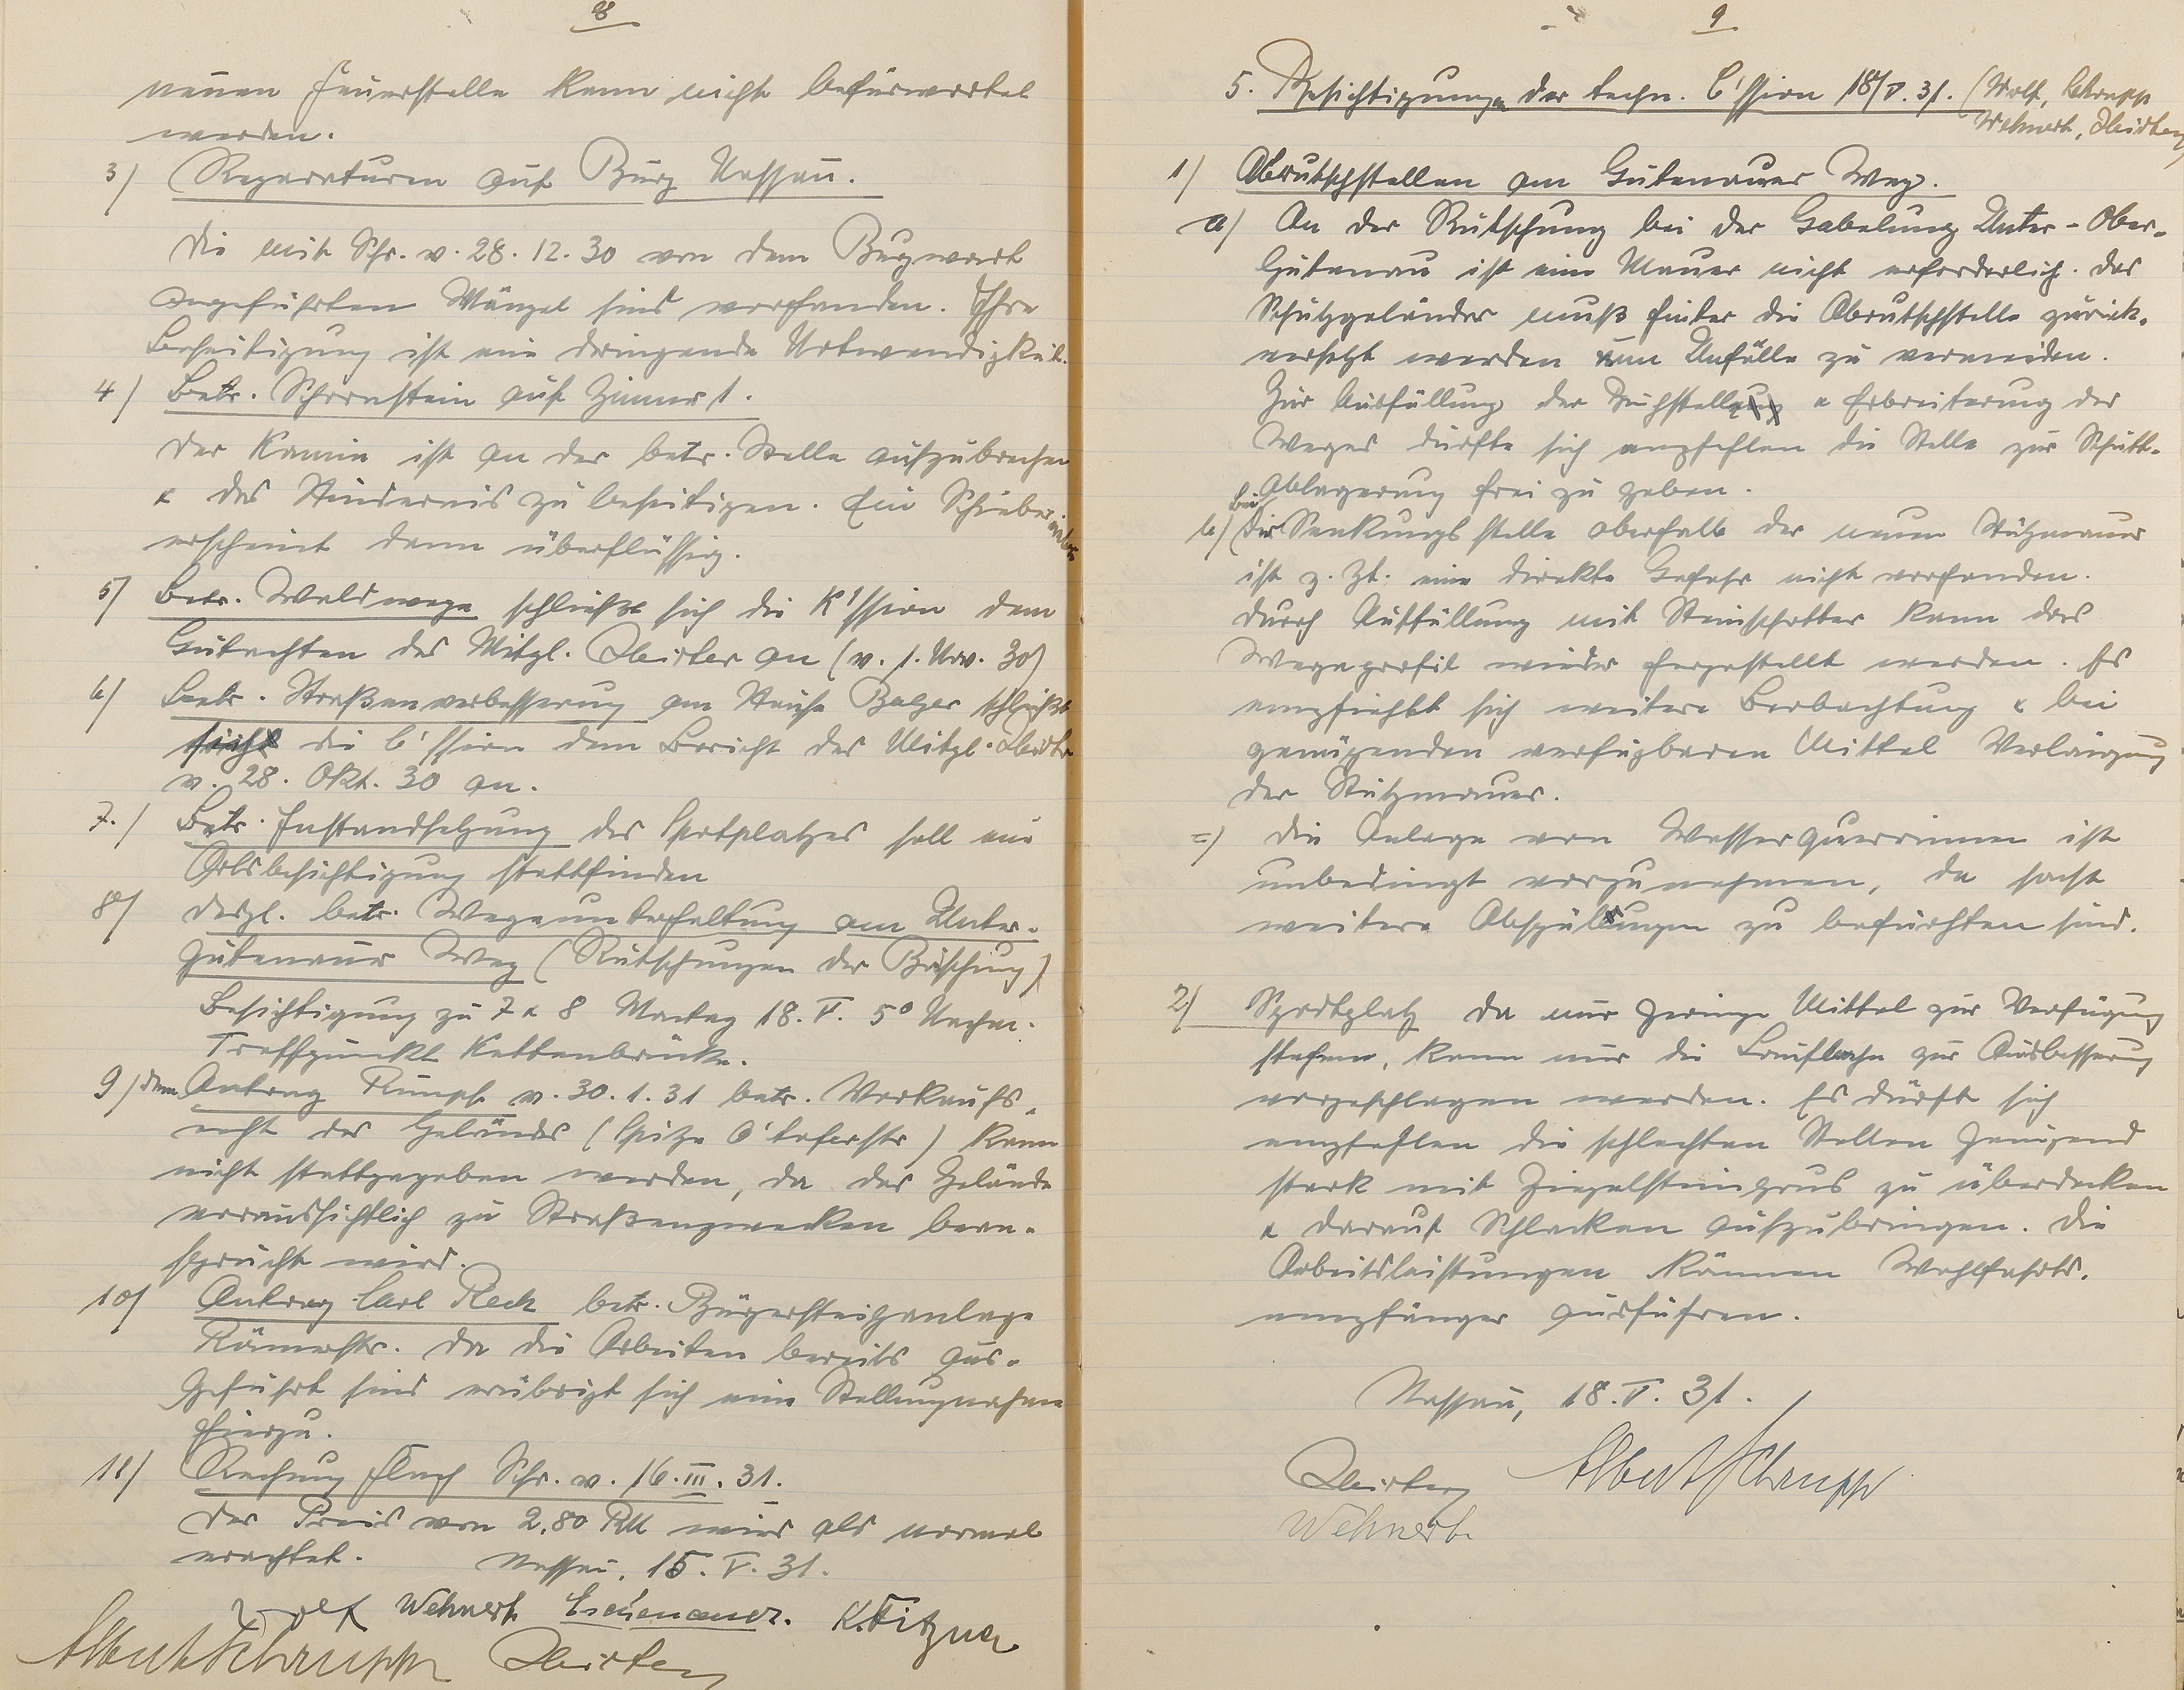 8
neuen Feuerstelle kann nicht befürwortet
werden.
3) Reparaturen auf Burg Nassau.
Die mit Schr. v. 28.12.30 von dem Burgwart
angeführten Mängel sind vorhanden. Ihre
Beseitigung ist eine dringende Notwendigkeit.
4) Betr. Schornstein auf Zimmer 1.
Der Kamin ist an der betr. Stelle aufzubrechen
& das Hindernis zu beseitigen. Ein Schieber
erscheint dann überflüssig.
5) Betr. Waldwege schließt sich die K'ssion dem
Gutachten des Mitgl. an (v. 1. Nov. 30)
6) Betr. Straßenverbesserung am Hause Balzer schließt
sich die C'ssion dem Bericht des Mitgl.
v. 28. Okt. 30 an.
7.) Betr. Instandsetzung des Sportplatzes soll eine
Ortsbesichtigung stattfinden
8) desgl. betr. Wegeunterhaltung am Unter-
gutenauer Weg (Rutschungen der Böschung)
Besichtigung zu 7 & 8 Montag 18. V. 5⁰ Nachm.
Treffpunkt Kettenbrücke.
9) dem Antrag Rumpf v. 30.1.31 betr. Vorkaufs-
recht des Geländes (Spitze) kann
nicht stattgegeben werden, da das Gelände
voraussichtlich zu Straßenzwecken bean-
sprucht wird.
10) Antrag Carl Reck betr. Bürgersteiganlage
Römerstr. Da die Arbeiten bereits aus-
geführt sind erübrigt sich eine Stellungnahme
hierzu.
11) Rechnung Flach Schr. v. 16. III. 31.
Der Preis von 2,80 RM wird als normal
erachtet. Nassau, 15. V. 31.
Wolf Wehnert K. Fitzner
Albert Schrupp
9
5. Besichtigung der techn. C'ssion 18/V. 31. (Wolf, Schrupp
Wehnert,
1) Abrutschstellen am Gutenauer Weg.
a) An der Rutschung bei der Gabelung Unter-Ober-
Gutenau ist eine Mauer nicht erforderlich. Das
Schutzgeländer muß hinter die Abrutschstelle zurück-
versetzt werden um Unfälle zu vermeiden.
Zur Ausfüllung der & Erbreiterung des
Weges dürfte sich empfehlen die Stelle zur Schutt-
Ablagerung frei zu geben.
b) Bei der Senkungsstelle oberhalb der neuen Stützmauer
ist z. Zt. eine direkte Gefahr nicht vorhanden.
Durch Auffüllung mit Steinschotter kann das
Wegeprofil wieder hergestellt werden. Es
empfiehlt sich weitere Beobachtung & bei
genügenden verfügbaren Mittel Verlängung
der Stützmauer.
=) Die Anlage von Wasserquerrinnen ist
unbedingt vorzunehmen, da sonst
weitere Abspülungen zu befürchten sind.
2) Sportplatz Da nur geringe Mittel zur Verfügung
stehen, kann nur die Laufbahn zur Ausbesserung
vorgeschlagen werden. Es dürft sich
empfehlen die schlechten Stellen genügend
stark mit Ziegelsteingrus zu überdecken
& darauf Schlacken aufzubringen. Die
Arbeitsleistungen können Wohlfahrts-
empfänger ausführen.
Nassau, 18. V. 31.
Albert Schrupp
Wehnert